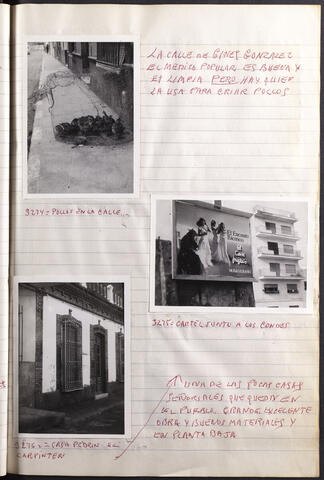 LA CALLE DE GINES GONZALEZ
EL MEDICO POPULAR ES BUENA Y
ES LIMPIA PERO HAY QUIEN
LA USA PARA CRIAR POLLOS
3274= POLLOS EN LA CALLE...
El Encanto
3275= CARTEL JUNTO A LOS CONDES
UNA DE LAS POCAS CASAS
SEÑORIALES QUE QUEDAN EN
EL PUEBLO GRANDE EXCELENTE
OBRA Y BUENOS MATERIALES Y
EN PLANTA BAJA
3276= CASA PEDRIN EL
CARPINTER